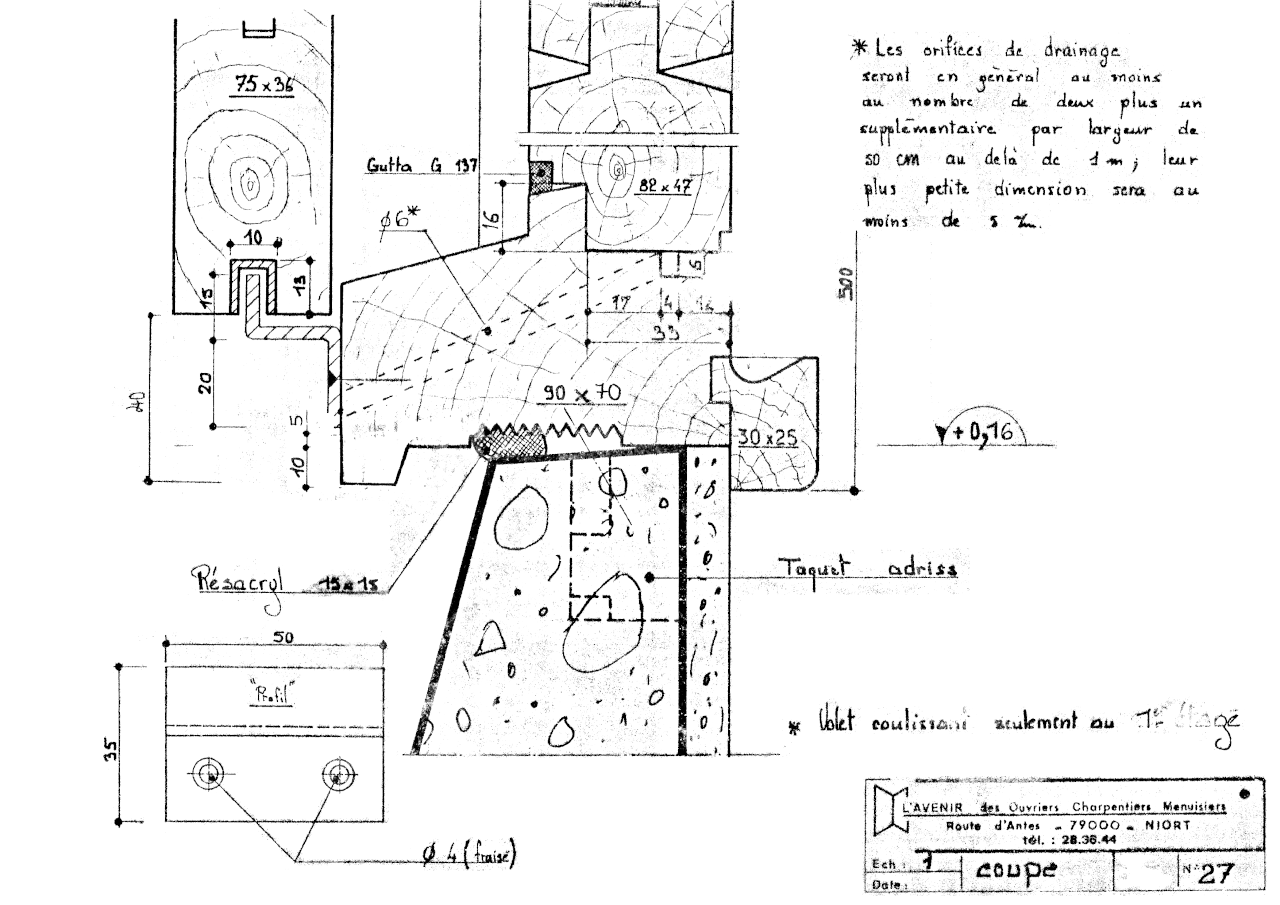 75 x 36
Gutta G 137
ø6*
16
82 x 47
10
13
15
20
40
5
10
5
17
4
14
33
5
90 x 70
30 x 25
500
* Les orifices de drainage
seront en général au moins
au nombre de deux plus un
supplémentaire par largeur de
50 cm au delà de 1 m ; leur
plus petite dimension sera au
moins de 5 m/m.
+ 0,16
Résacryl 15 x 15
Taquet adriss
50
"Profil"
35
Ø 4 (fraisé)
* Volet coulissant seulement au 1er étage
L'AVENIR des Ouvriers Charpentiers Menuisiers
Route d'Antes - 79000 - NIORT
tél. : 28.36.44
Ech : 1
coupe
N° 27
Date :